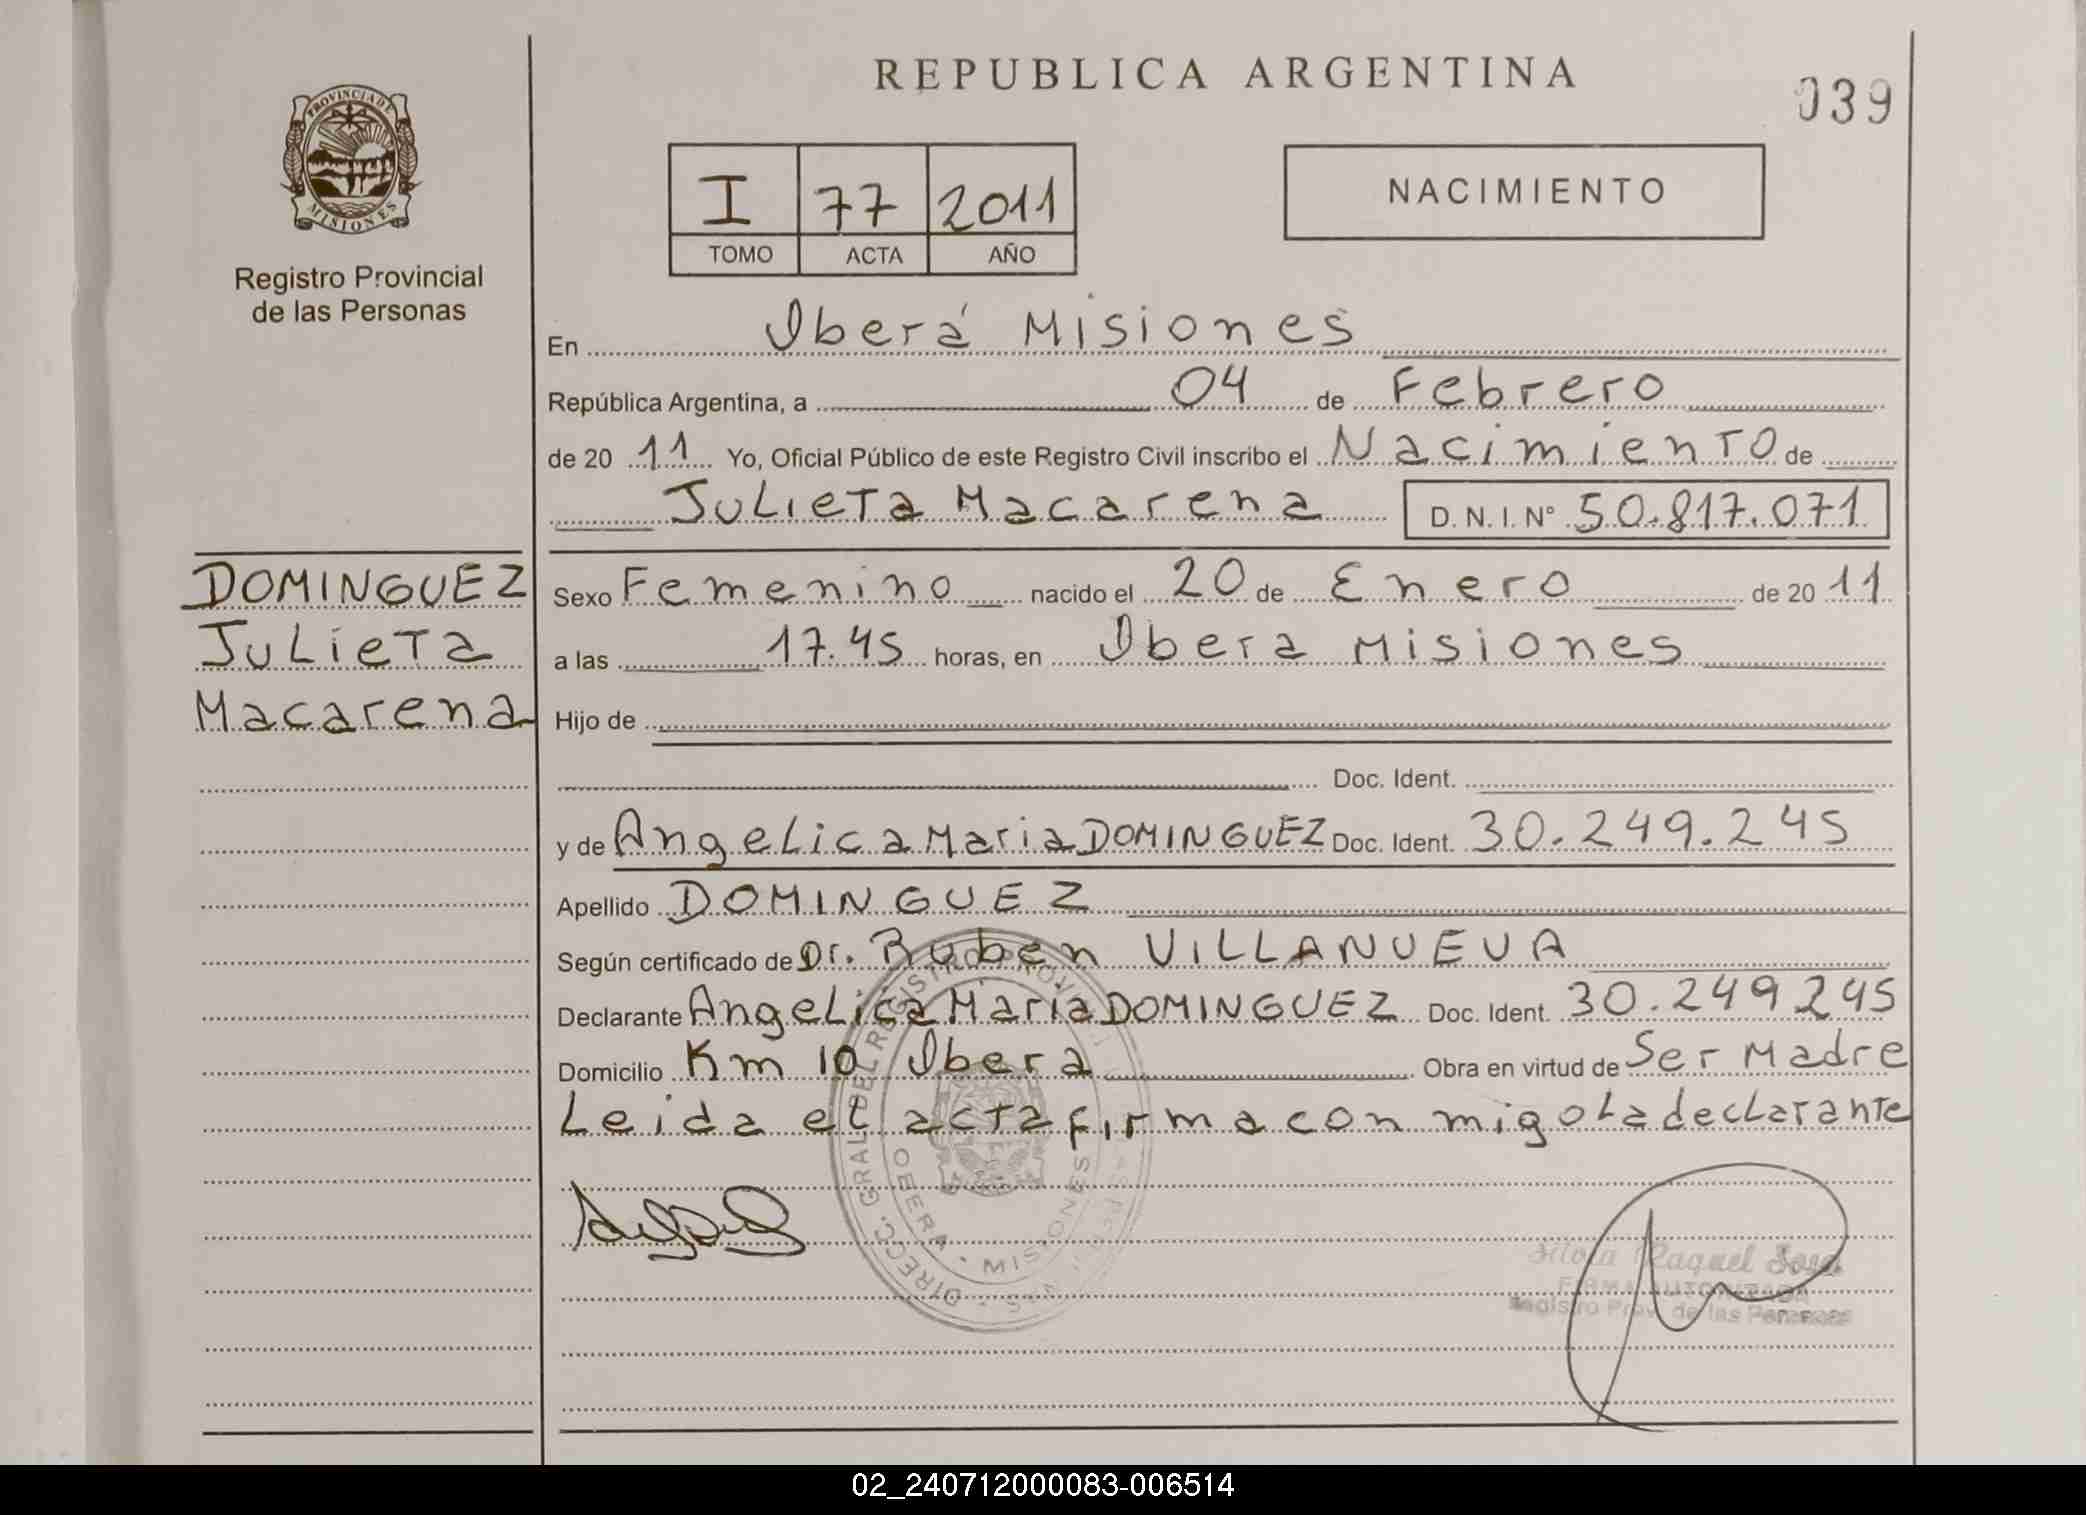 REPUBLICA ARGENTINA
039
PROVINCIA DE
MISIONES
Registro Provincial
de las Personas
I 77 2011
TOMO ACTA AÑO
NACIMIENTO
En Iberá Misiones
República Argentina, a 04 de Febrero
de 20 11 Yo, Oficial Público de este Registro Civil inscribo el Nacimiento de
Julieta Macarena D. N. I. N° 50.817.071
DOMINGUEZ
Julieta
Macarena
Sexo Femenino nacido el 20 de Enero de 20 11
a las 17.45 horas, en Ibera Misiones
Hijo de
Doc. Ident.
y de Angelica Maria DOMINGUEZ Doc. Ident. 30.249.245
Apellido DOMINGUEZ
Según certificado de Dr. Ruben VILLANUEVA
Declarante Angelica Maria DOMINGUEZ Doc. Ident. 30.249245
Domicilio Km 10 Ibera Obra en virtud de Ser Madre
Leida el acta firma con migo la declarante
DIRECC. GRAL. DEL REGISTRO PROV.
OBERA - MISIONES
Raquel Sosa
FIRMA AUTORIZADA
Registro Prov. de las Personas
02_240712000083-006514